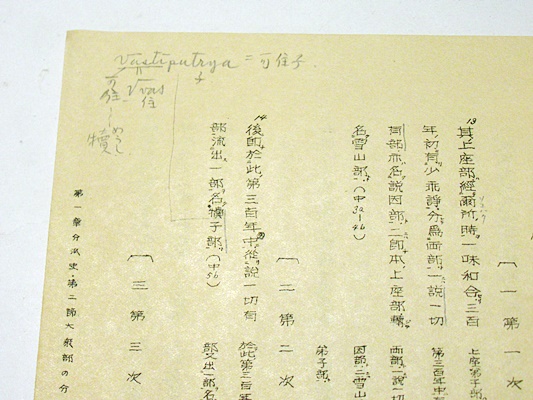 Vastiputrya = 可住子.
子
可住
√vas
住
犢
〔一 第一次
13 其上座部經爾所時一味和合三百
年初有少乖諍分爲兩部一説一切
有部亦名説因部二即本上座部轉
名雪山部(中3a-4b)
〔二 第二次
14 後即於此第三百年中從説一切有
部流出一部名犢子部(中5b)
〔三 第三次
上座弟子部
第三百年中
兩部一説一切
因部二雪山
弟子部
於此第三百年
部又出一部名
第一章分派史・第二節大衆部の分